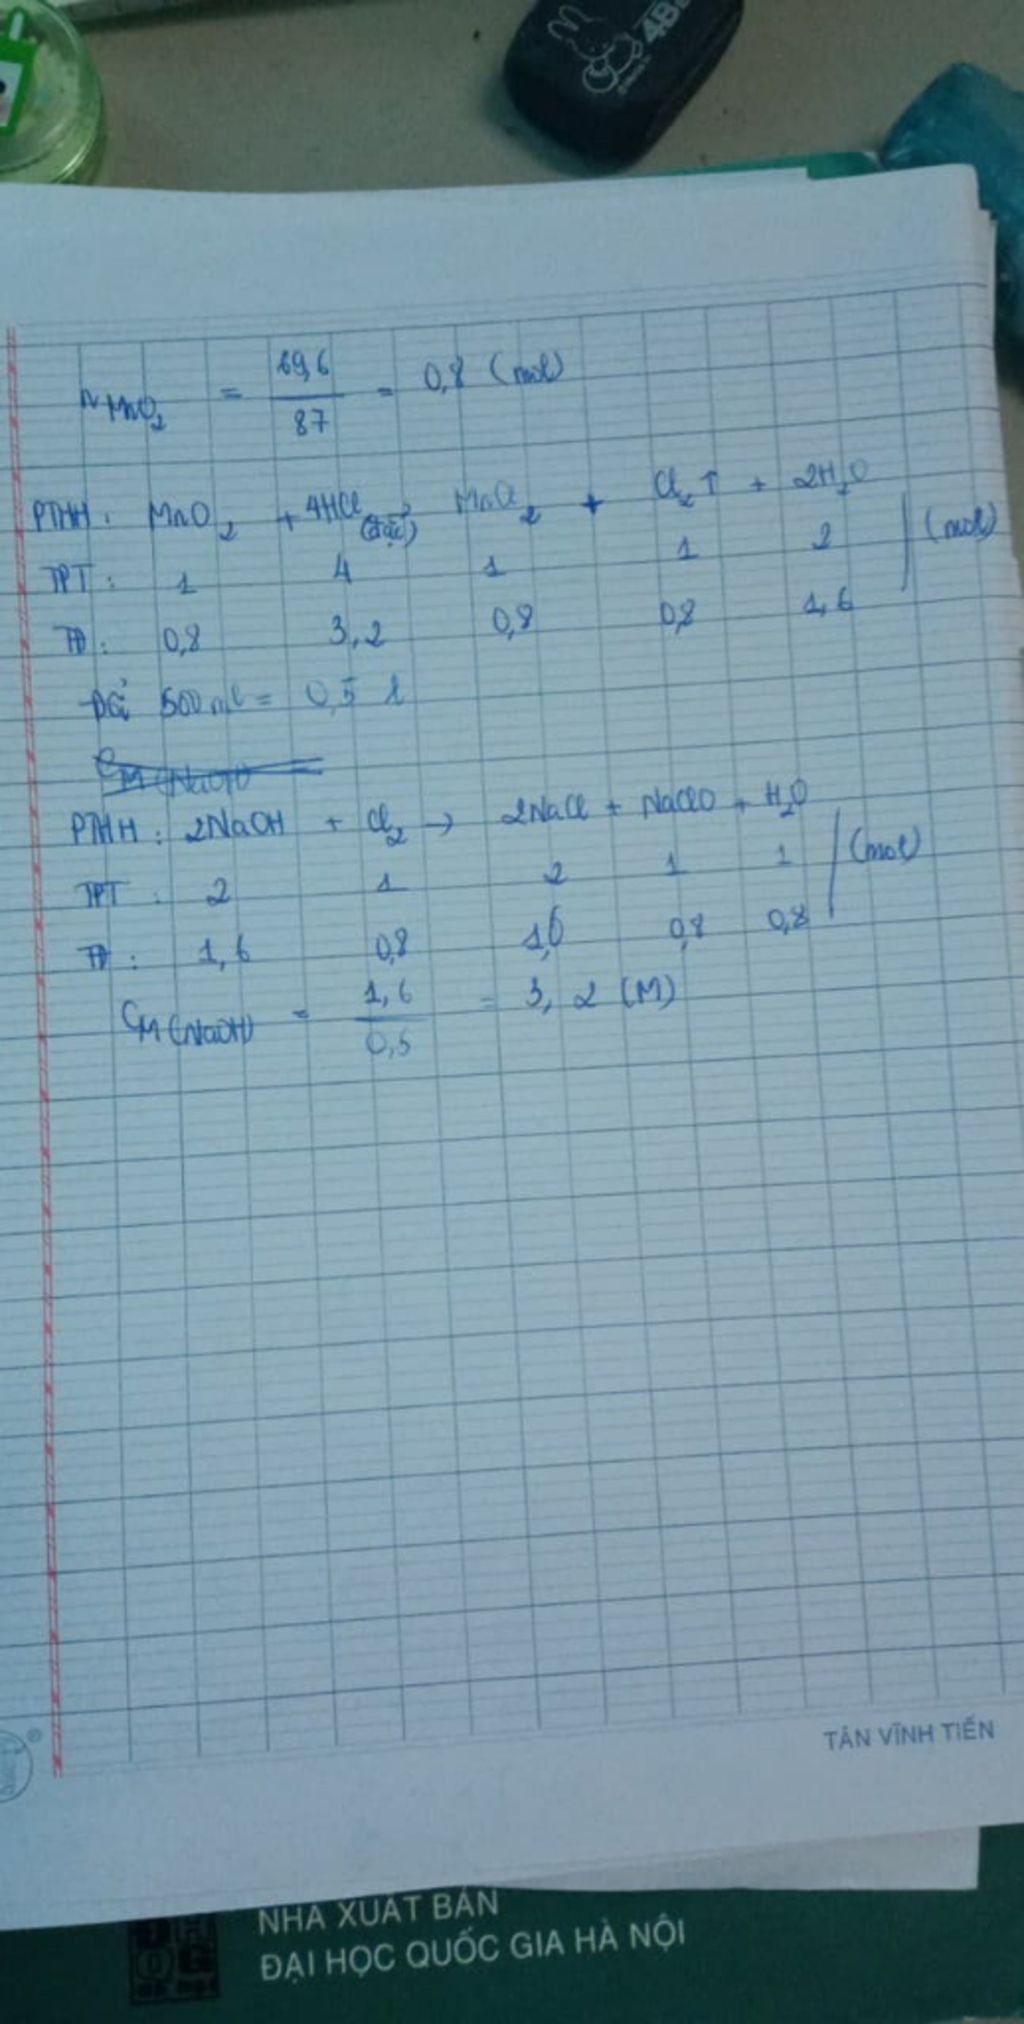 48
nMnO2 = 69,6 / 87 = 0,8 (mol)
PTHH: MnO2 + 4HCl (đặc) → MnCl2 + Cl2↑ + 2H2O
TPT: 1 4 1 1 2 (mol)
TD: 0,8 3,2 0,8 0,8 1,6
Đổi 500 ml = 0,5 l
CM (NaOH)
PTHH: 2NaOH + Cl2 → 2NaCl + NaClO + H2O
TPT: 2 1 2 1 1 (mol)
TD: 1,6 0,8 1,6 0,8 0,8
CM (NaOH) = 1,6 / 0,5 = 3,2 (M)
TÂN VĨNH TIẾN
NHÀ XUẤT BẢN
ĐẠI HỌC QUỐC GIA HÀ NỘI